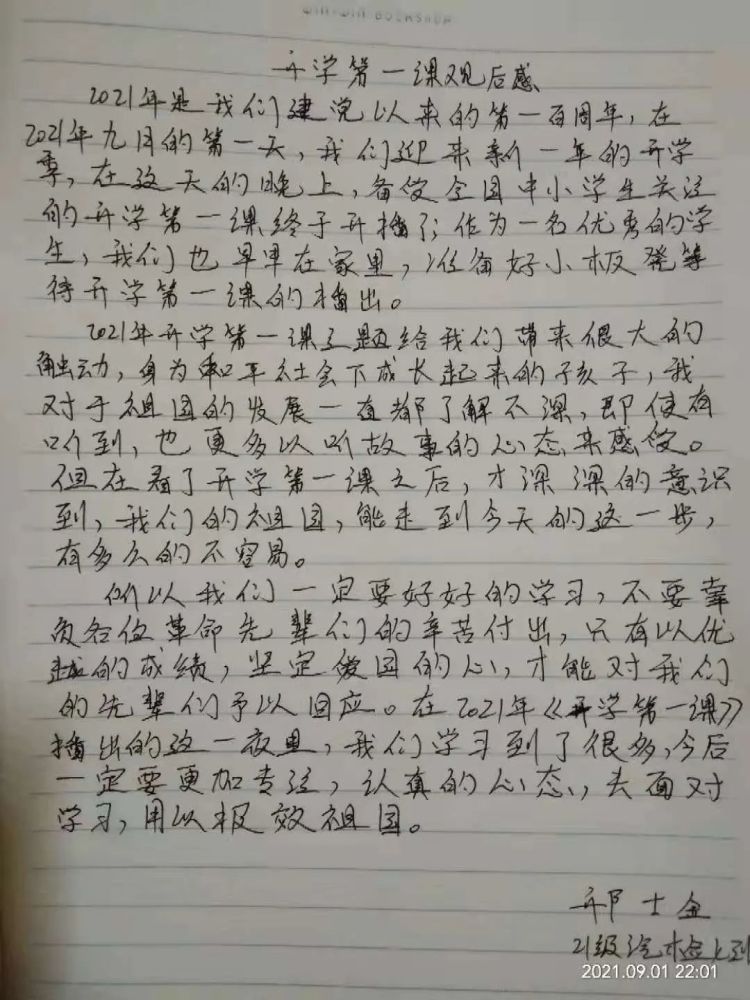 WIN-WIN BOOKSHOP
开学第一课观后感
2021年是我们建党以来的第一百周年,在
2021年九月的第一天,我们迎来新一年的开学
季,在这天的晚上,备受全国中小学生关注
的开学第一课终于开播了;作为一名优秀的学
生,我们也早早在家里,准备好小板凳等
待开学第一课的播出。
2021年开学第一课主题给我们带来很大的
触动,身为和平社会下成长起来的孩子,我
对于祖国的发展一直都了解不深,即使有
听到,也更多以听故事的心态来感受。
但在看了开学第一课之后,才深深的意识
到,我们的祖国,能走到今天的这一步,
有多么的不容易。
所以我们一定要好好的学习,不要辜
负各位革命先辈们的辛苦付出,只有以优
越的成绩,坚定爱国的心,才能对我们
的先辈们予以回应。在2021年《开学第一课》
播出的这一夜里,我们学习到了很多,今后
一定要更加专注,认真的心态,去面对
学习,用以报效祖国。
祁士金
21级汽检
2021.09.01 22:01